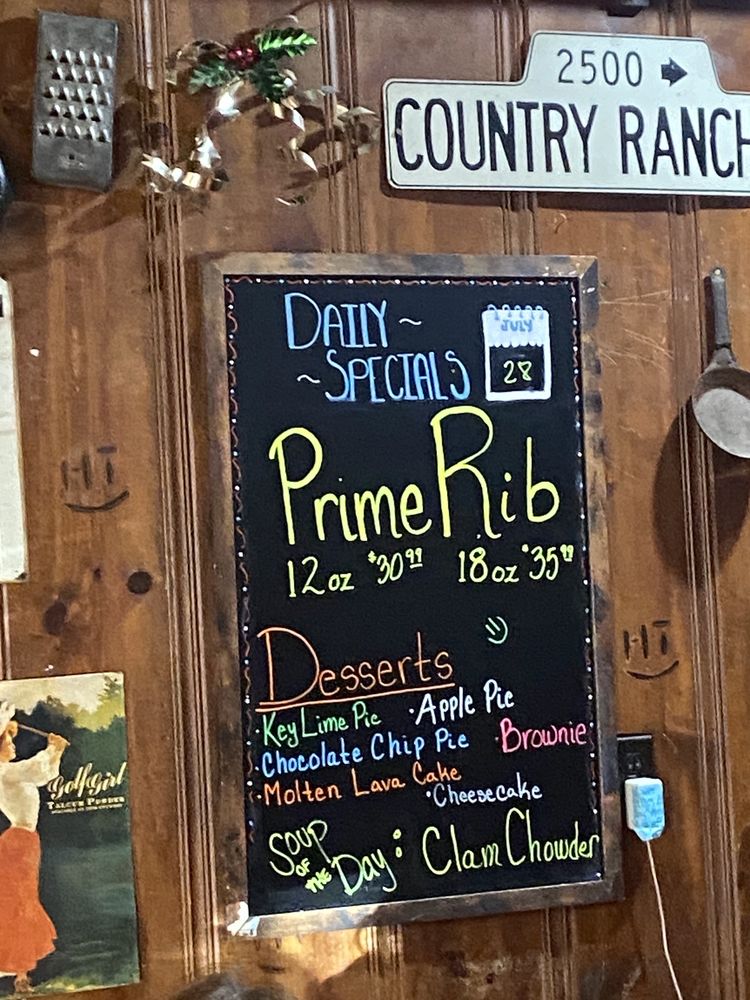 2500 →
COUNTRY RANCH
DAILY ~
~ SPECIALS
JULY
28
Prime Rib
12 oz $30.99 18 oz $35.99
Desserts
·Key Lime Pie ·Apple Pie
·Chocolate Chip Pie ·Brownie
·Molten Lava Cake
·Cheesecake
SOUP OF THE Day: Clam Chowder
HI
HI
Golf Girl
TALCUM POWDER